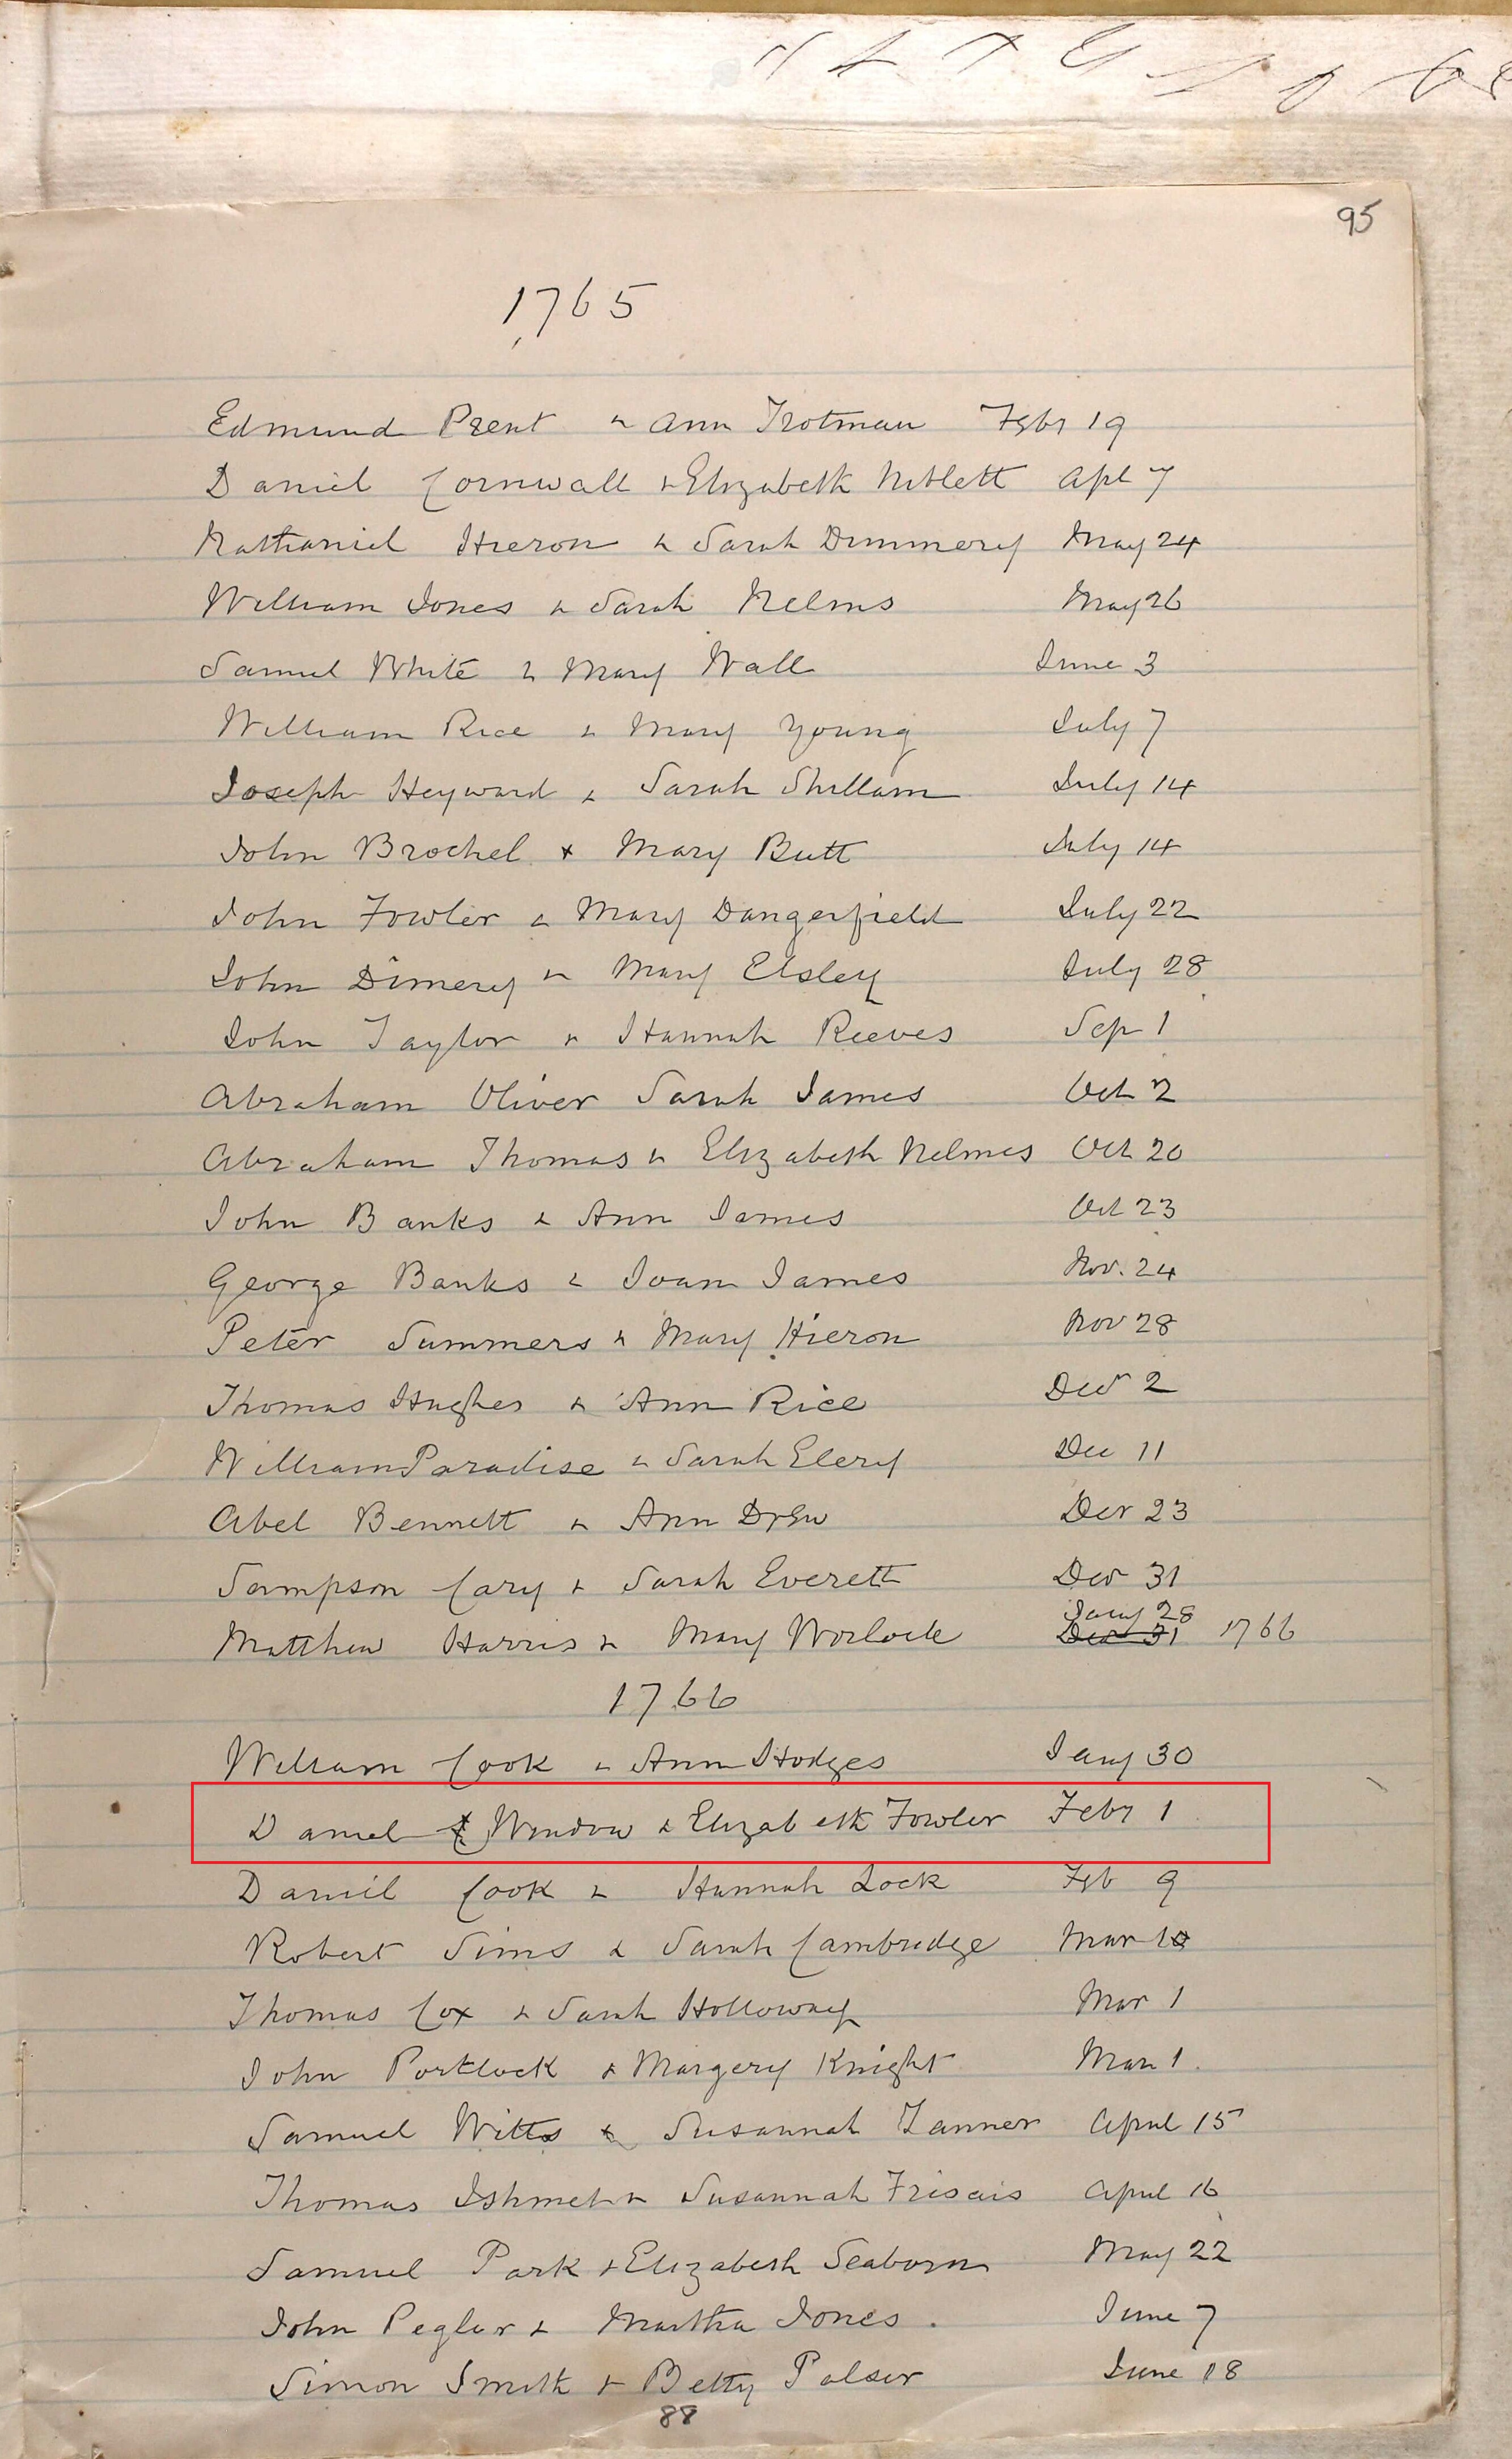 95
1765
Edmund Prent & Ann Trotman Febr 19
Daniel Cornwall & Elizabeth Niblett Apl 7
Nathaniel Hieron & Sarah Dimmery May 24
William Jones & Sarah Nelms May 26
Samuel White & Mary Wall June 3
William Rice & Mary Young July 7
Joseph Heyward & Sarah Shillam July 14
John Brochel & Mary Butt July 14
John Fowler & Mary Dangerfield July 22
John Dimery & Mary Elsley July 28
John Taylor & Hannah Reeves Sep 1
Abraham Oliver Sarah James Oct 2
Abraham Thomas & Elizabeth Nelmes Oct 20
John Banks & Ann James Oct 23
George Banks & Joan James Nov. 24
Peter Summers & Mary Hieron Nov 28
Thomas Hughes & Ann Rice Dec 2
William Paradise & Sarah Elery Dec 11
Abel Bennett & Ann Drew Dec 23
Sampson Cary & Sarah Everett Dec 31
Matthew Harris & Mary Worlock Jany 28 Dec 31 1766
1766
William Cook & Ann Hodges Jany 30
Daniel Window & Elizabeth Fowler Febr 1
Daniel Cook & Hannah Lock Feb 9
Robert Sims & Sarah Cambridge Mar
Thomas Cox & Sarah Holloway Mar 1
John Portlock & Margery Knight Mar 1.
Samuel Witts & Susannah Tanner April 15
Thomas Ishmel & Susannah April 16
Samuel Park & Elizabeth Seaborn May 22
John Pegler & Martha Jones. June 7
Simon Smith & Betty Palser June 18
88